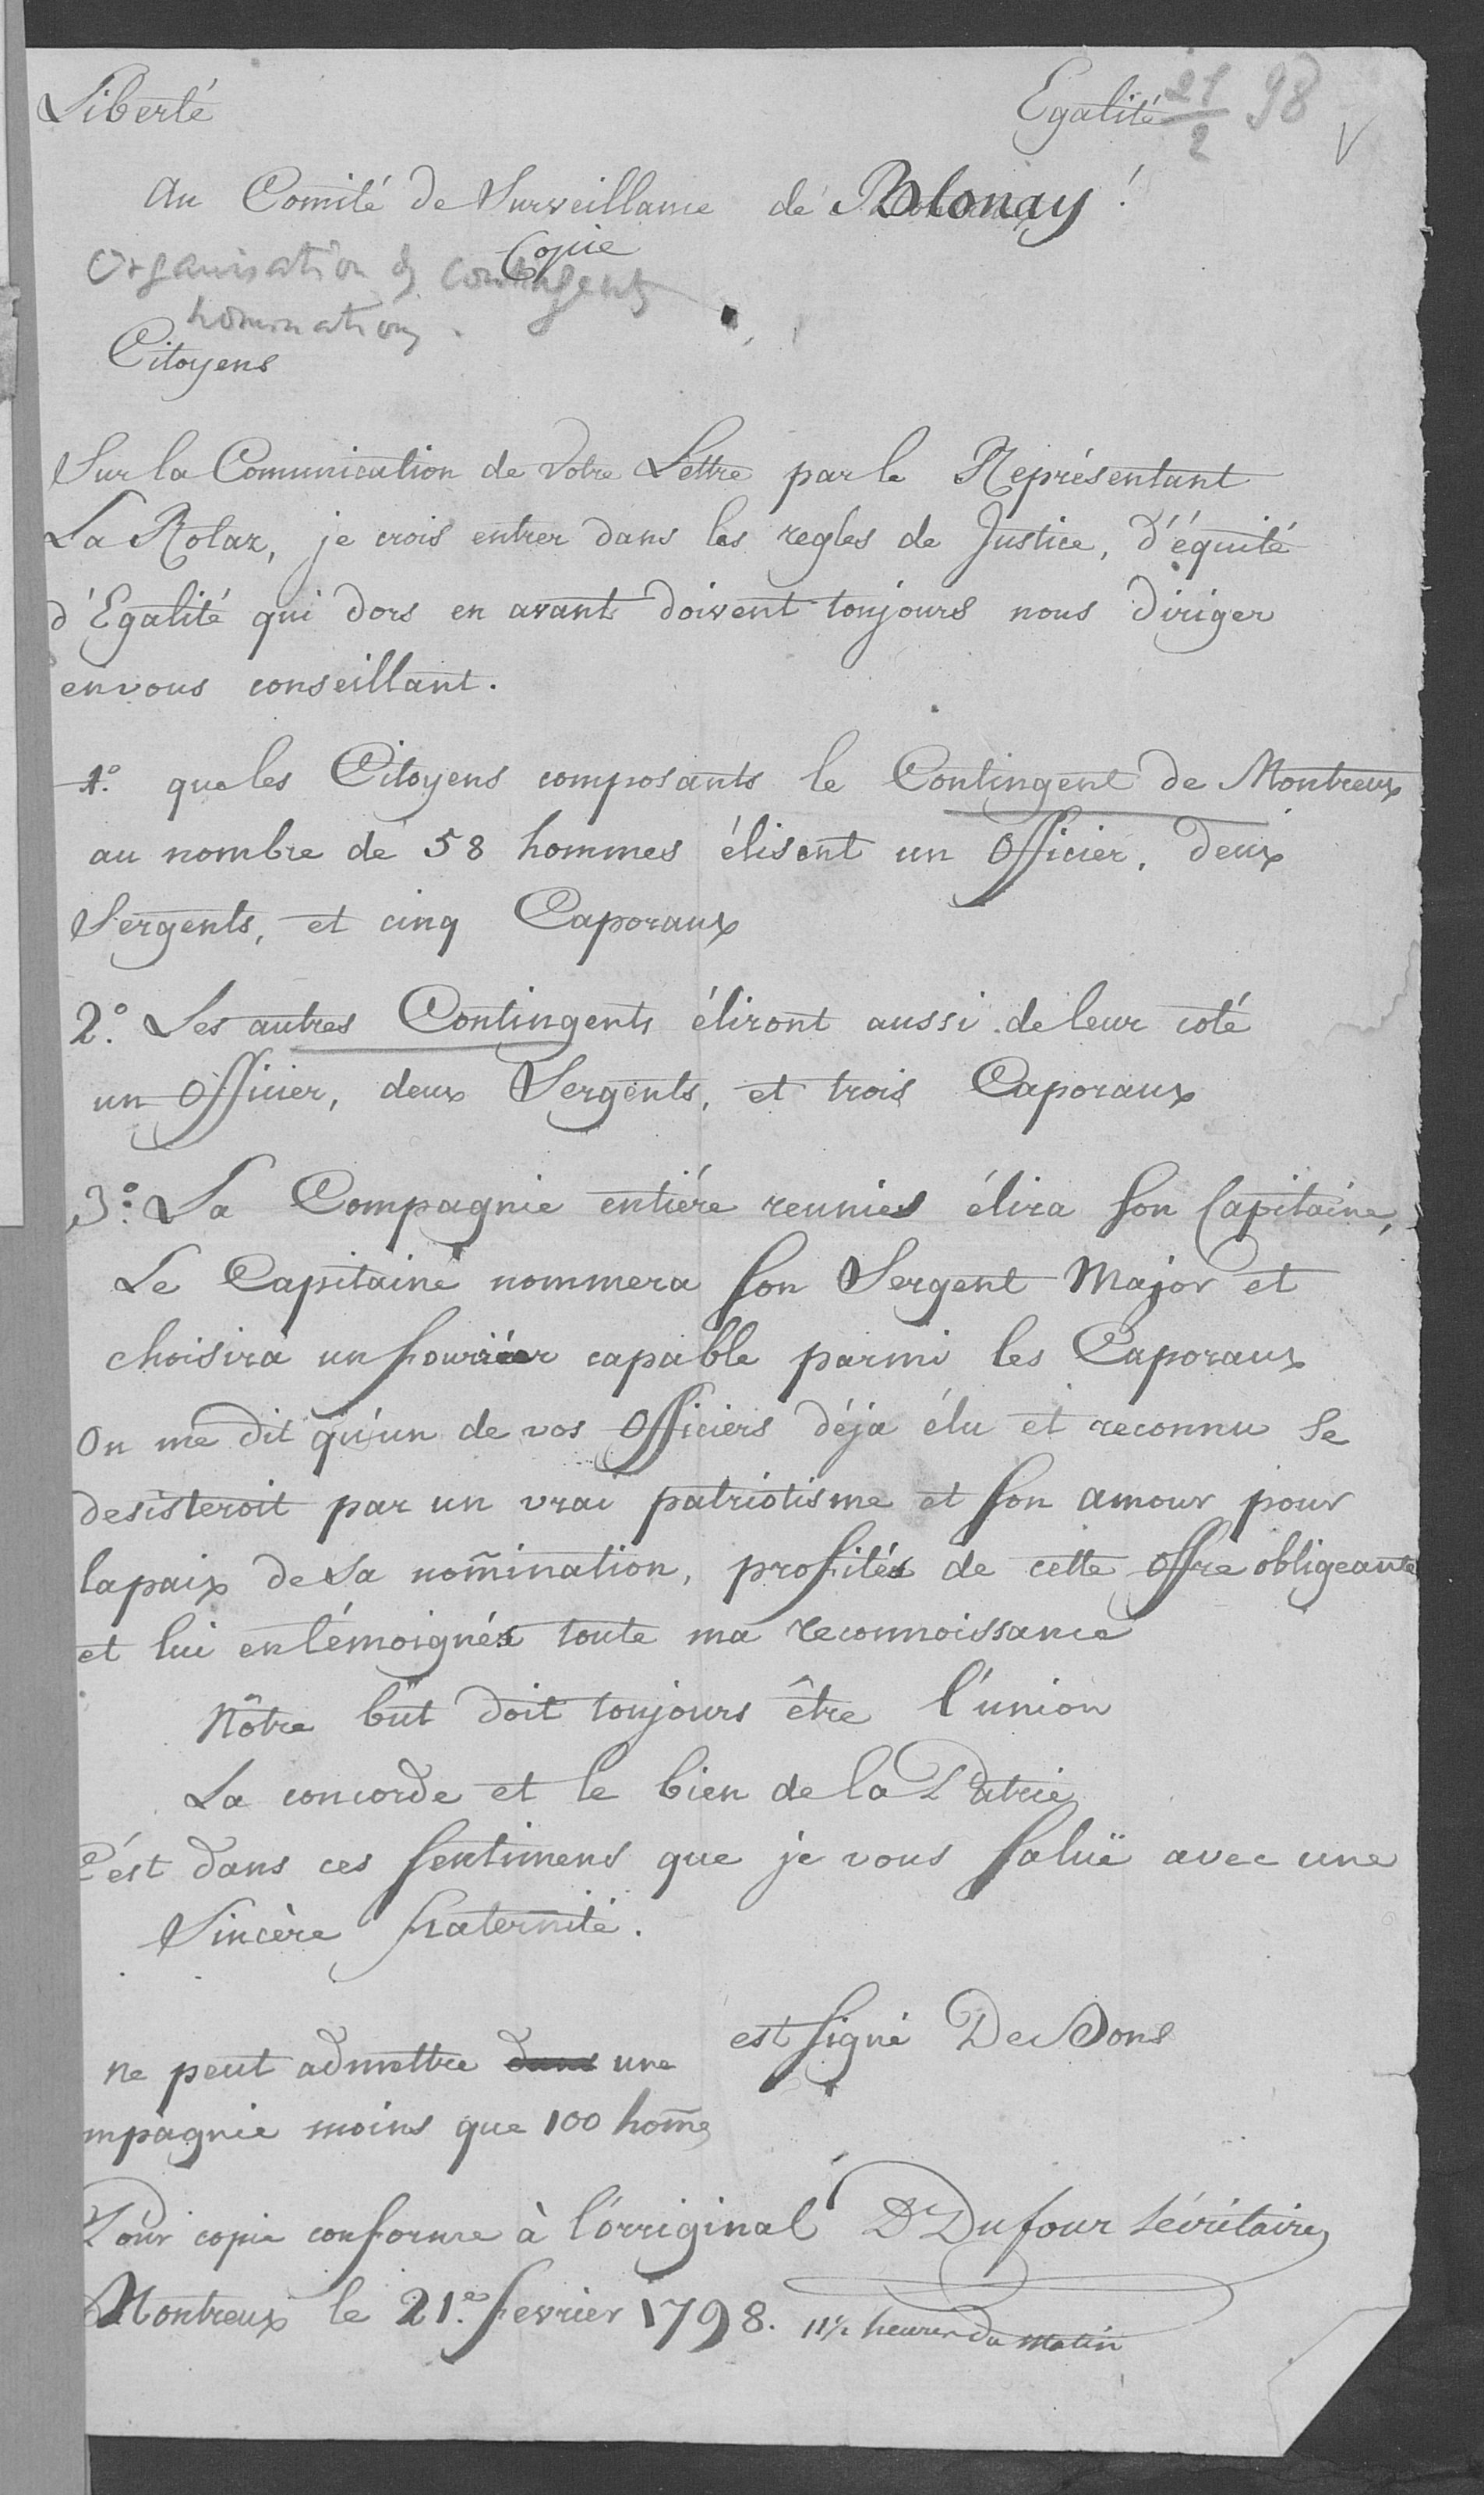 Liberté Egalité 21/2 98 V
Au Comité de Surveillance de Blonay !
Copie
Organisation des contingents
nominations.
Citoyens
Sur la Comunication de votre Lettre par le Représentant
La Rolaz, je crois entrer dans les regles de Justice, d'équité
d'Egalité qui dors en avant doivent toujours nous diriger
en vous conseillant.
1.° que les Citoyens composants le Contingent de Montreux
au nombre de 58 hommes élisent un Officier, deux
Sergents, et cinq Caporaux
2.° Les autres Contingents éliront aussi de leur coté
un Officier, deux Sergents, et trois Caporaux
3.° La Compagnie entiére reunies élira son Capitaine,
Le Capitaine nommera son Sergent Major et
choisira un fourrier capable parmi les Caporaux
On me dit qu'un de vos Officiers déja élu et reconnu se
desisteroit par un vrai patriotisme et son amour pour
la paix de sa nom̃ination, profités de cette offre obligeante
et lui en témoignés toute ma reconnoissance
Nôtre bût doit toujours être l'union
La concorde et le bien de la Patrie
C'ést dans ces sentimens que je vous saluë avec une
Sincère fraternité.
est signé De Dons
ne peut admettre dans une
mpagnie moins que 100 hom̃es
Pour copie conforme à l'órriginal D Dufour sécrétaire
Montreux le 21.e fevrier 1798. 11½ heures du matin